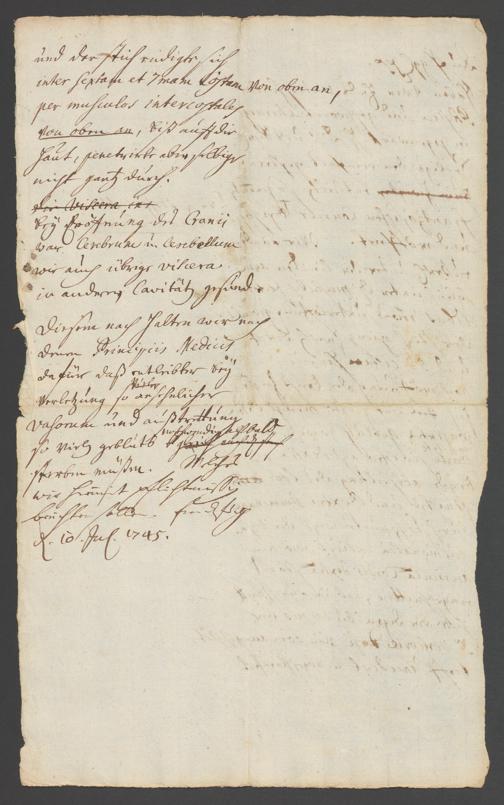 und der Stich endigte sich
inter septam et 7mam Costam von oben an,
per musculos intercostales
von oben an, biß auff die
Haut, penetrirte aber selbige
nicht gantz durch.
viscera
bey Eröffnung des Cranii
war Cerebrum u. Cerebellum
wie auch übrige viscera
in anderen Cavitäten gesund.
Diesem nach halten wir nach
denen Principiis Medicis
dafür daß entleibter bey
Verletzung so vieler ansehnlicher
Vasorum und außtrettung
so viely geblüts nothwendig
sterben müßen. Welches
wir hiemit pflichtmäßig
berichten sollen.
d. 10. Jul. 1745.